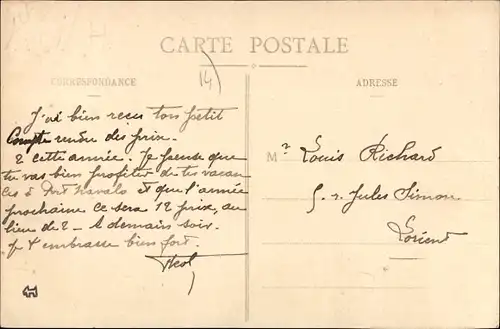 CARTE POSTALE
CORRESPONDANCE
ADRESSE
14
J'ai bien reçu ton petit
Compte rendu des prix.
2 cette année. Je pense que
tu vas bien profiter de tes vacan
ces à Port Navalo et que l'année
prochaine ce sera 12 prix, au
lieu de 2 - A demain soir.
je t'embrasse bien fort.
Mr Louis Richard
5. r. Jules Simon
Lorient